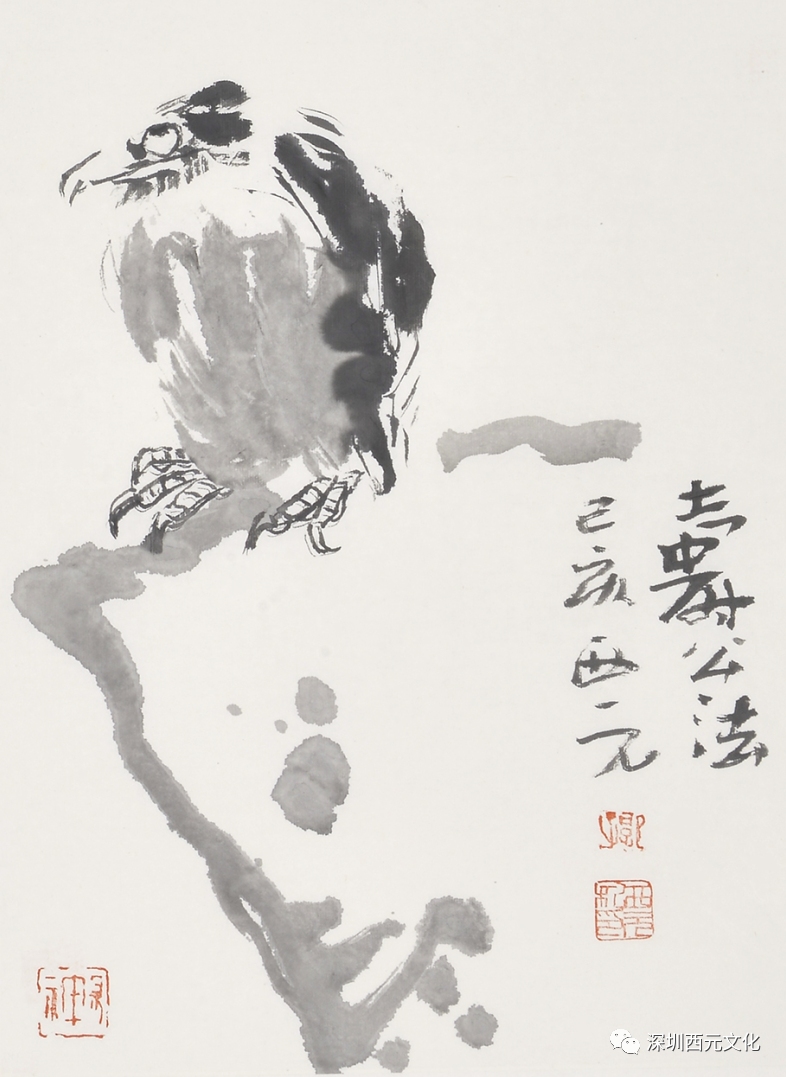 壽公法
己亥西元
深圳西元文化